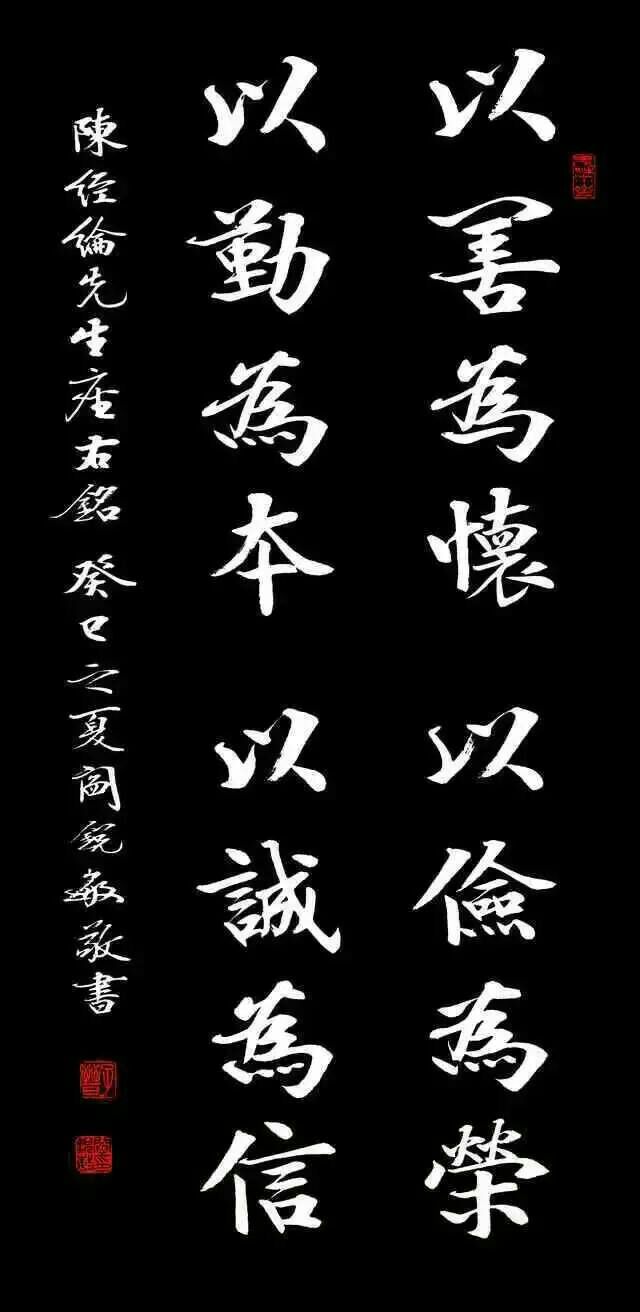 以善為懷 以儉為榮
以勤為本 以誠為信
陳经綸先生座右銘 癸巳之夏閻銳敏敬書